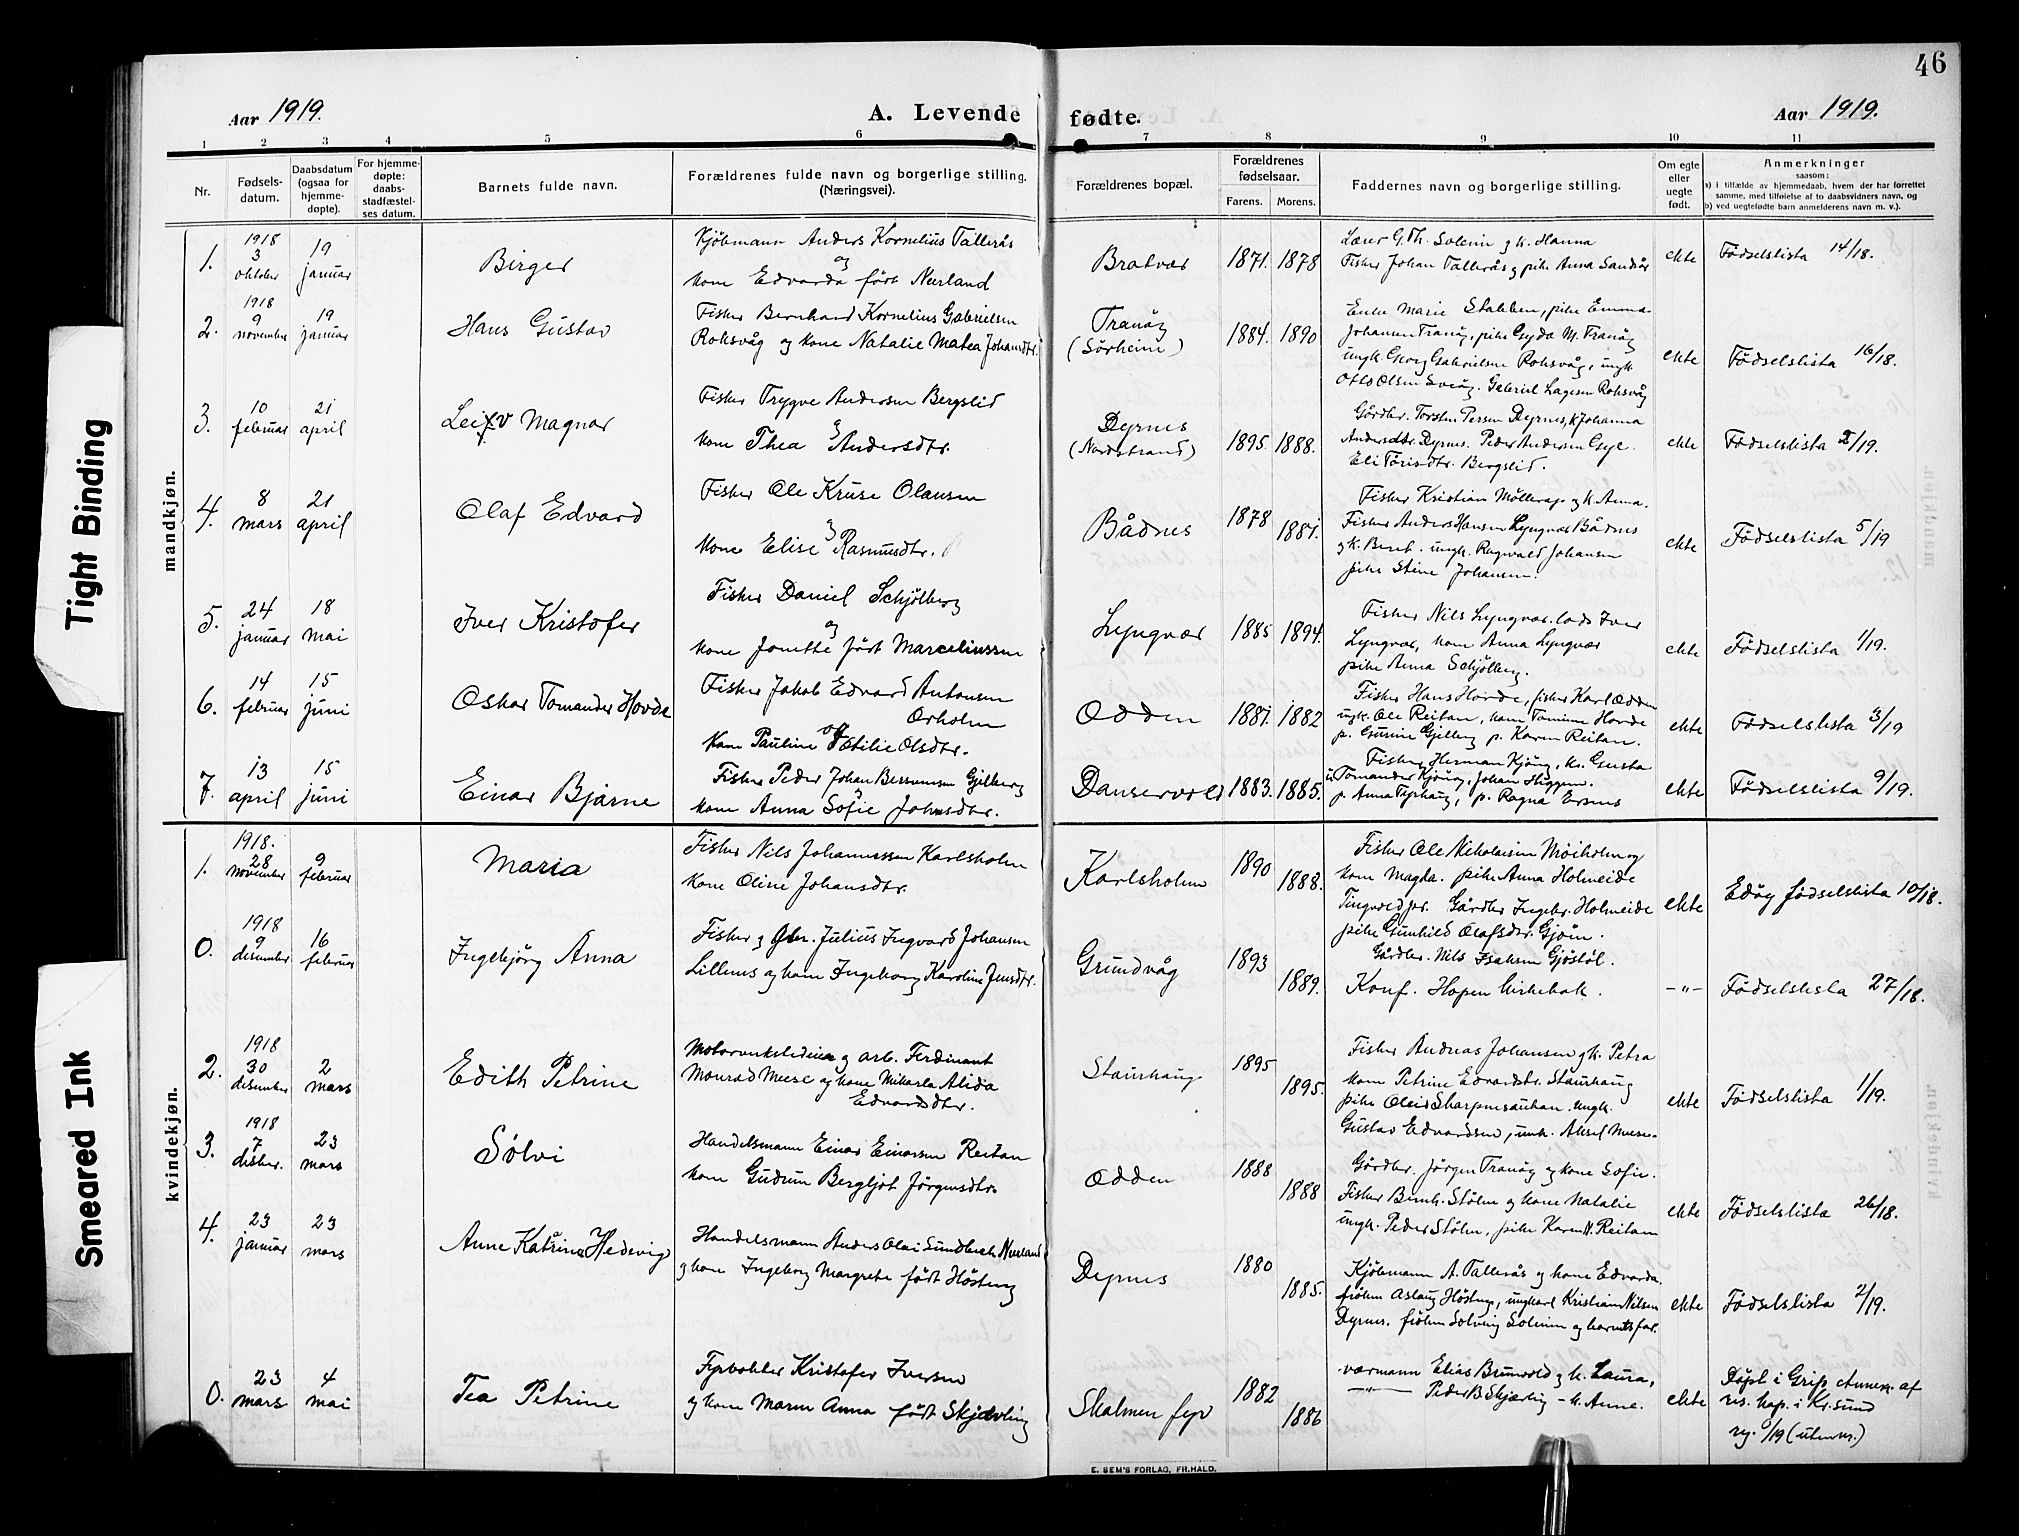 46
Aar 1919.
A. Levende
fødte.
Aar 1919.
1 2 3 4 5 6 7 8 9 10 11
Nr.
Fødsels-
datum.
Daabsdatum
(ogsaa for
hjemme-
døpte).
For hjemme-
døpte:
daabs-
stadfæstel-
ses datum.
Barnets fulde navn.
Forældrenes fulde navn og borgerlige stilling.
(Næringsvei).
Forældrenes bopæl.
Forældrenes
fødselsaar.
Farens. Morens.
Faddernes navn og borgerlige stilling.
Om egte
eller
uegte
født.
Anmerkninger
saasom:
a) i tilfælde av hjemmedaab, hvem der har forrettet
samme, med tilføielse af to daabsvidners navn, og
b) ved uegtefødte barn anmelderens navn m. v.).
mandkjøn.
1.
1918
3
oktober
19
januar
Birger
Kjøbmann Anders Kornelius Tallerås
og
kone Edvarda født Neerland
Bratvær
1871. 1878
Lærer G. Th. Solem og k. Hanna
Fisker Johan Tallerås og pike Anna Sandsør
ekte
Fødselslista 14/18.
2.
1918
9
november
19
januar
Hans Gustav
Fisker Bernhard Kornelius Gabrielsen
Roksvåg og kone Natalie Matea Johansdtr.
Tranøy
(Sørheim)
1884. 1890
Enke Marie Stabben, pike Emma
Johansen Tranøy, pike Gyda M. Tranøy
ungk. Georg Gabrielsen Roksvåg, ungk
Otto Olsen Sveøy. Gabriel Lagesen Roksvåg
ekte
Fødselslista 16/18.
3.
10
februar
21
april
Leiv Magnar
Fisker Trygve Andersen Bergslid
og
kone Thea Andersdtr.
Dyrnes
(Nordstrand)
1895. 1888.
Gårdbr. Torsten Persen Dyrnes, k Johanna
Andersdtr. Dyrnes. Peder Andersen
Eli Torisdtr. Bergslid.
ekte
Fødselslista 2/19.
4.
8
mars
21
april
Olaf Edvard
Fisker Ole Kruse Olausen
og
kone Elise Rasmusdtr.
Bådnes
1878 1881.
Fisker Kristian Møllerop og k. Anna.
Fisker Anders Hansen Lyngvær Bådnes
og k. Beret. ungk. Ragnvald Johansen
pike Stine Johansen.
ekte
Fødselslista 5/19
5.
24
januar
18
mai
Iver Kristofer
Fisker Daniel Schjølberg
og
kone Jonette født Marceliussen
Lyngvær
1885 1894.
Fisker Nils Lyngvær. lods Iver
Lyngvær, kone Anna Lyngvær
pike Anna Schjølberg.
ekte
Fødselslista 1/19.
6.
14
februar
15
juni
Oskar Tomander Hovde
Fisker Jakob Edvard Antonsen
Orholm
og
kone Pauline Otilie Olsdtr.
Odden
1881. 1882
Fisker Hans Hovde, fisker Karl Odden
ungk. Ole Reitan, kone Tomine Hovde
p. Gurine Gjelberg p. Karen Reitan.
ekte
Fødselslista 3/19
7.
13
april
15
juni
Einar Bjarne
Fisker Peder Johan Bersvensen Gjelberg
og
kone Anna Sofie Johnsdtr.
Danservold
1883. 1885.
Fisker Herman Kjöноу, k. Gusta
Tomander Kjönøy, Johan Skiggen.
p. Anna Tyrhaug, p. Ragna
ekte
Fødselslista 9/19.
kvindekjøn.
1.
1918.
28
november
9
februar
Maria
Fisker Nils Johannessen Karlsholm
kone Oline Johansdtr.
Karlsholm
1890 1888.
Fisker Ole Nikolaisen Møiholm og
kone Magda. pike Anna Holmeide
Tingvold pr. Gårdbr Ingebr. Holmeide
pike Gunhild Olafsdtr. Gjøen.
Gårdbr. Nils Isaksen Gjøstøl.
ekte
Edøy fødselslista 10/18.
0.
1918
9
desember
16
februar
Ingebjørg Anna
Fisker og Gbr. Julius Ingvard Johansen
Lillenes og kone Ingeborg Karoline Jensdtr.
Grundvåg
1893 1889.
Konf. Hopen kirkebok.
-"-
Fødselslista 27/18.
2.
1918
30
desember
2
mars
Edith Petrine
og arb. Ferdinant
Monrad Meese og kone Mikarla Alida
Edvardsdtr.
Staurhaug
1895 1895.
Fisker Andreas Johansen og k. Petra
kone Petrine Edvardsdtr. Staurhaug
pike Oleid Skarpnesauhan, ungk.
Gustav Edvardsen, unk. Aksel Meese.
ekte
Fødselslista 1/19.
3.
1918
7
desber.
23
mars
Sølvi
Handelsmann Einar Einarsen Reitan
kone Gudrun Bergljot Jørgensdtr.
Odden
1888 1888
Gårdbr. Jørgen Tranøy og kone Sofie.
Fisker Bernh. Stølen og kone Natalie
ungk. Peder Stølen, pike Karen M. Reitan
ekte
Fødselslista 26/18.
4.
23
januar
23
mars
Anne Katrine Hedevig
Handelsmann Anders Olai Sundbech Neerland
og kone Ingeborg Margrete født Høsteng
Dyrnes
1880 1885.
Kjøbmann A. Tallerås og kone Edvarda.
frøken Aslaug Høsteng, ungkarl Kristian Nilsen
Dyrnes. frøken Solveig Solem og barnets far.
ekte
Fødselslista 2/19.
0.
23
mars
4
mai
Tea Petrine
Fyrvokter Kristofer Iversen
og kone Maren Anna født Skjevling
Skalmen fyr
1882 1886
værmann Elias Brunvold og k. Laura,
-"- Peder B Skjærling - k. Anne.
ekte
Døpt i Grip Annex. af
res. kap. i Kr.sund
ry. 9/19 (utenvs.)
E. SEM'S FORLAG, FR.HALD.
Tight Binding
Smeared Ink
mandkjøn.
kvindekjøn.